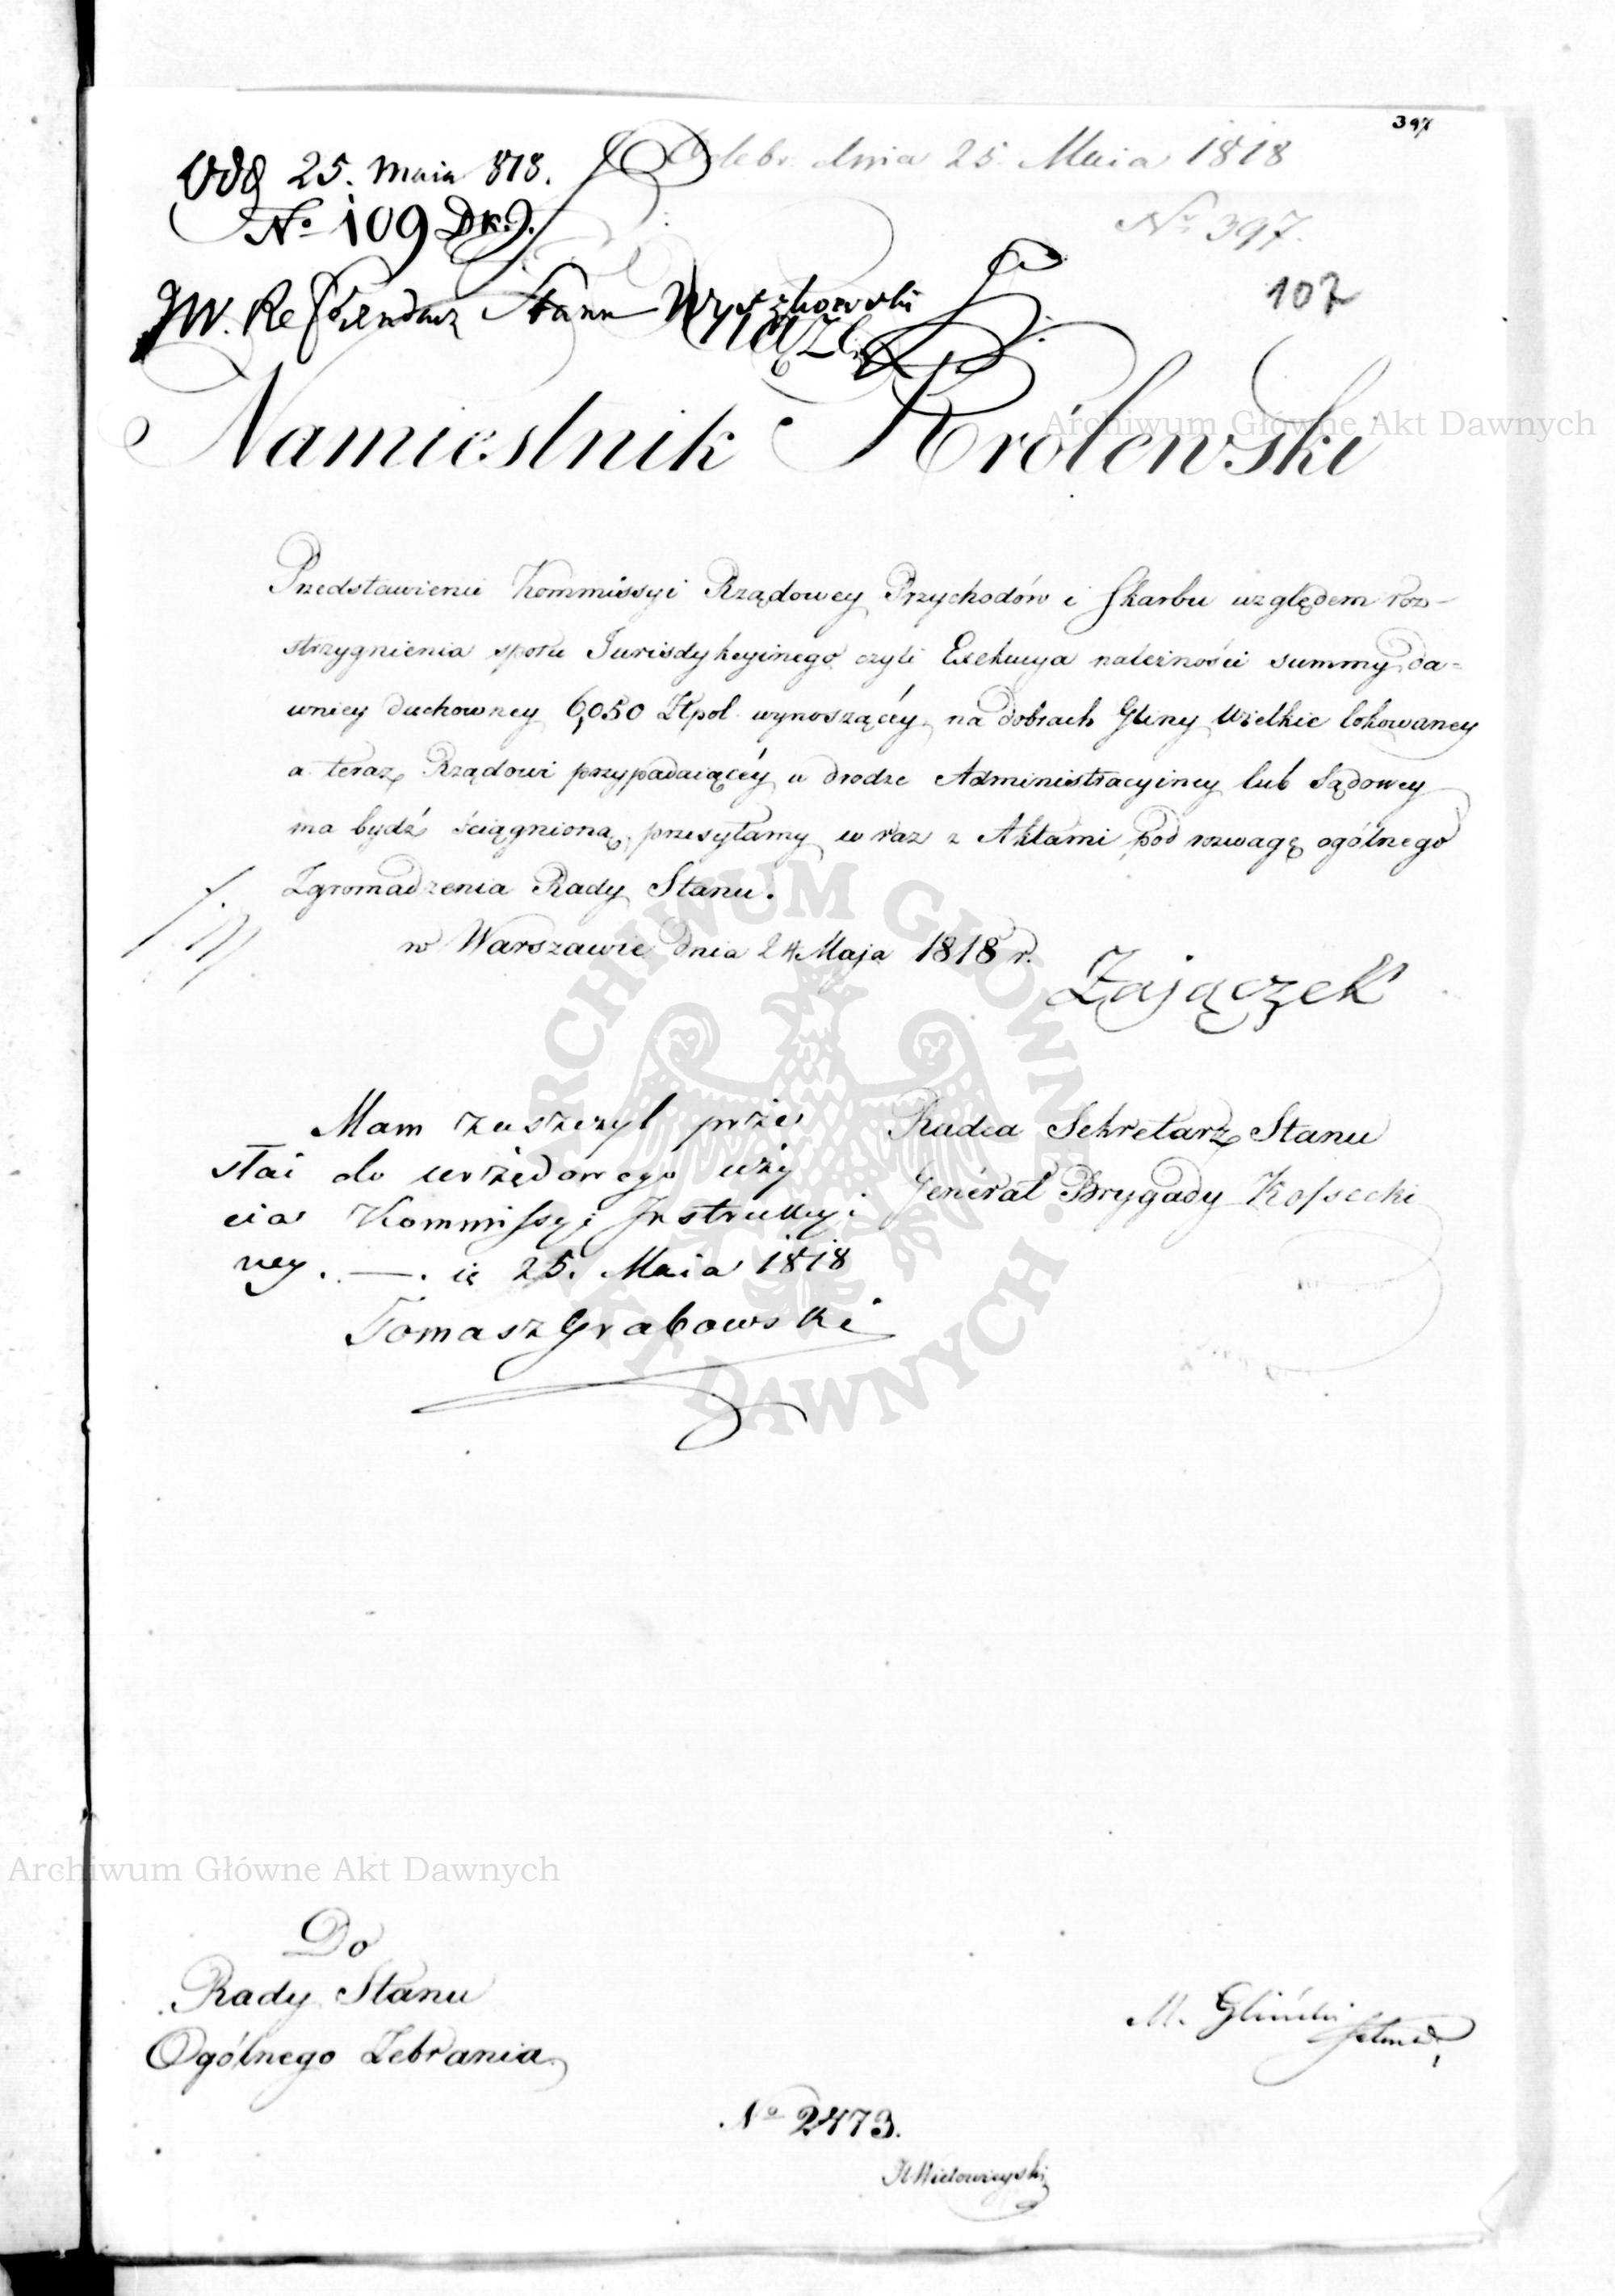 397
Odebr. dnia 25 Maia 1818
Odd 25. Maia 818.
No 109 Dk.
No 397.
107
JW. Referendarz Stanu Wyszkowski
Xiąże
Namiestnik Królewski
Archiwum Główne Akt Dawnych
Przedstawienie Kommissyi Rządowey Przychodów i Skarbu względem roz-
strzygnienia sporu Jurisdykcyinego czyli Exekucya należności summy da-
wniey duchowney 6,050 Złpol. wynoszącéy na dobrach Gliny Wielkie lokowaney
a teraz Rządowi przypadaiącéy w drodze Administracyiney lub Sądowey
ma bydź ściągnioną, przesyłamy w raz z Aktami pod rozwagę ogólnego
Zgromadzenia Rady Stanu.
w Warszawie dnia 24 Maja 1818 r.
Zajączek
Mam zaszczyt prze
słai do urzędowego uży
cia Kommissyi Instrukcyi
ney. —. 25. Maia 1818
Tomasz Grabowski
Radca Sekretarz Stanu
Generał Brygady Kossecki
ARCHIWUM GŁÓWNE AKT DAWNYCH
Archiwum Główne Akt Dawnych
Do
Rady Stanu
Ogólnego Zebrania
M. Gliński
No 2473.
Wielowieyski